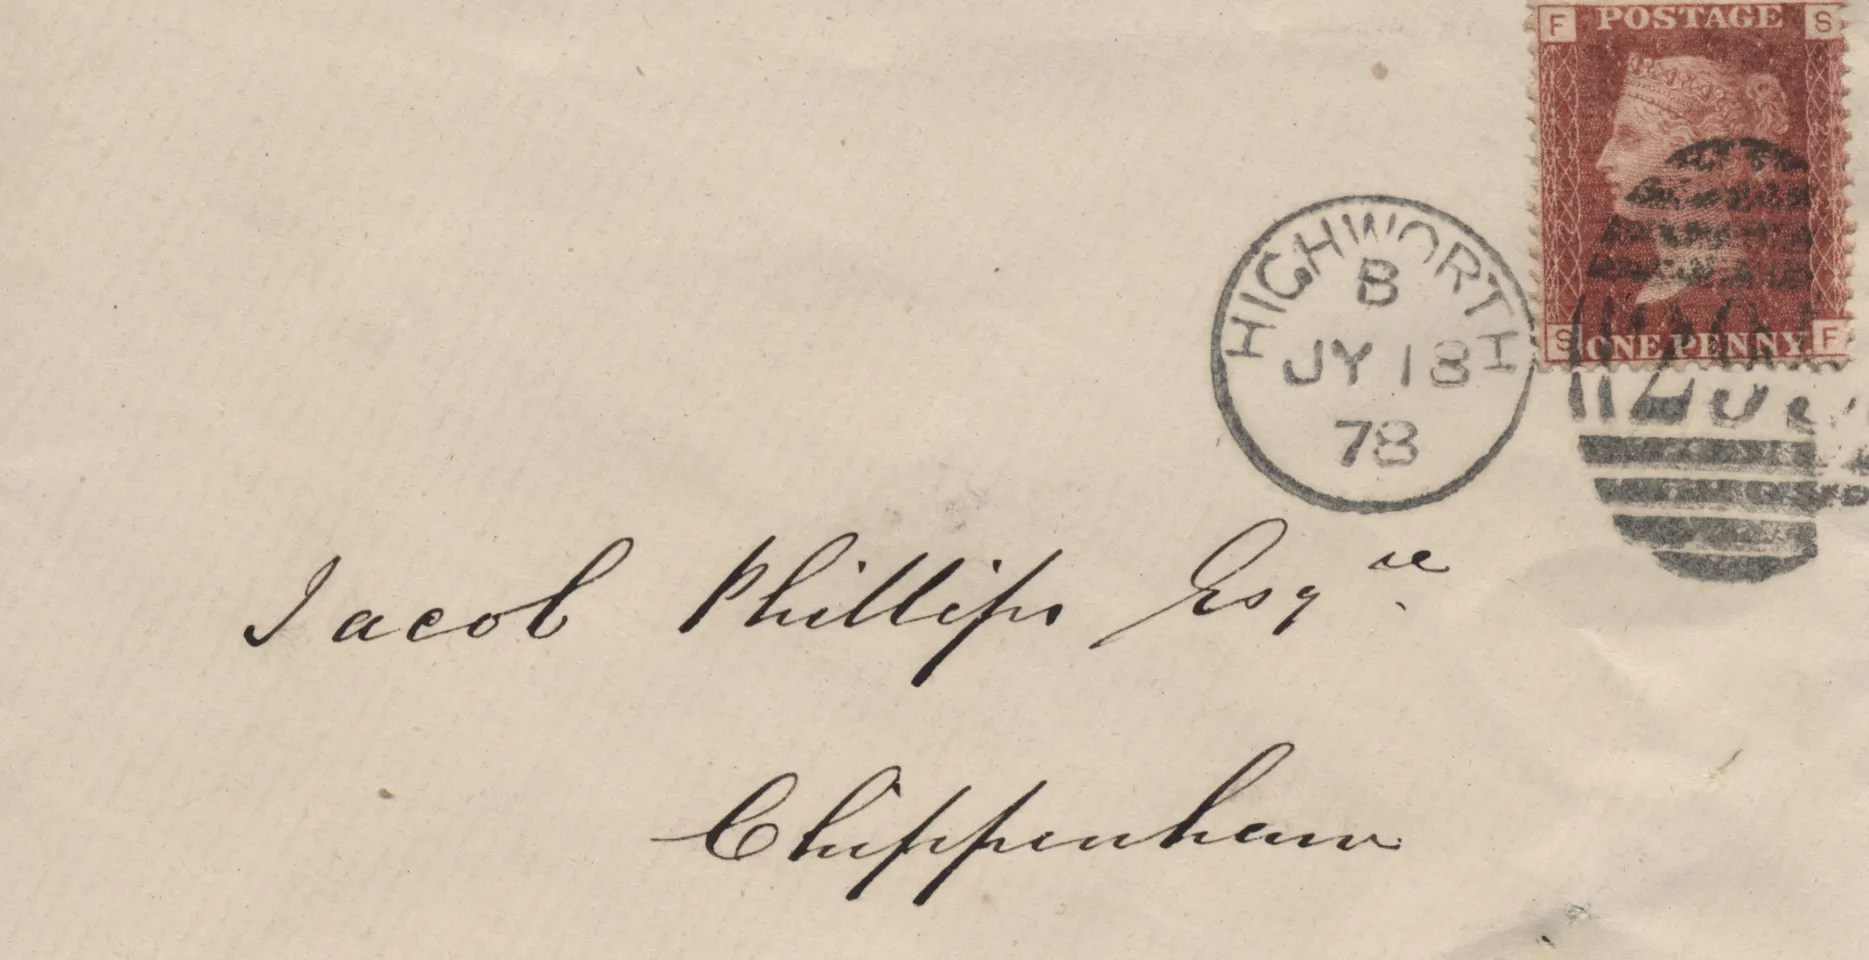 F POSTAGE S
S ONE PENNY. F
HIGHWORTH
B
JY 18
78
Jacob Phillips Esqre
Chippenham